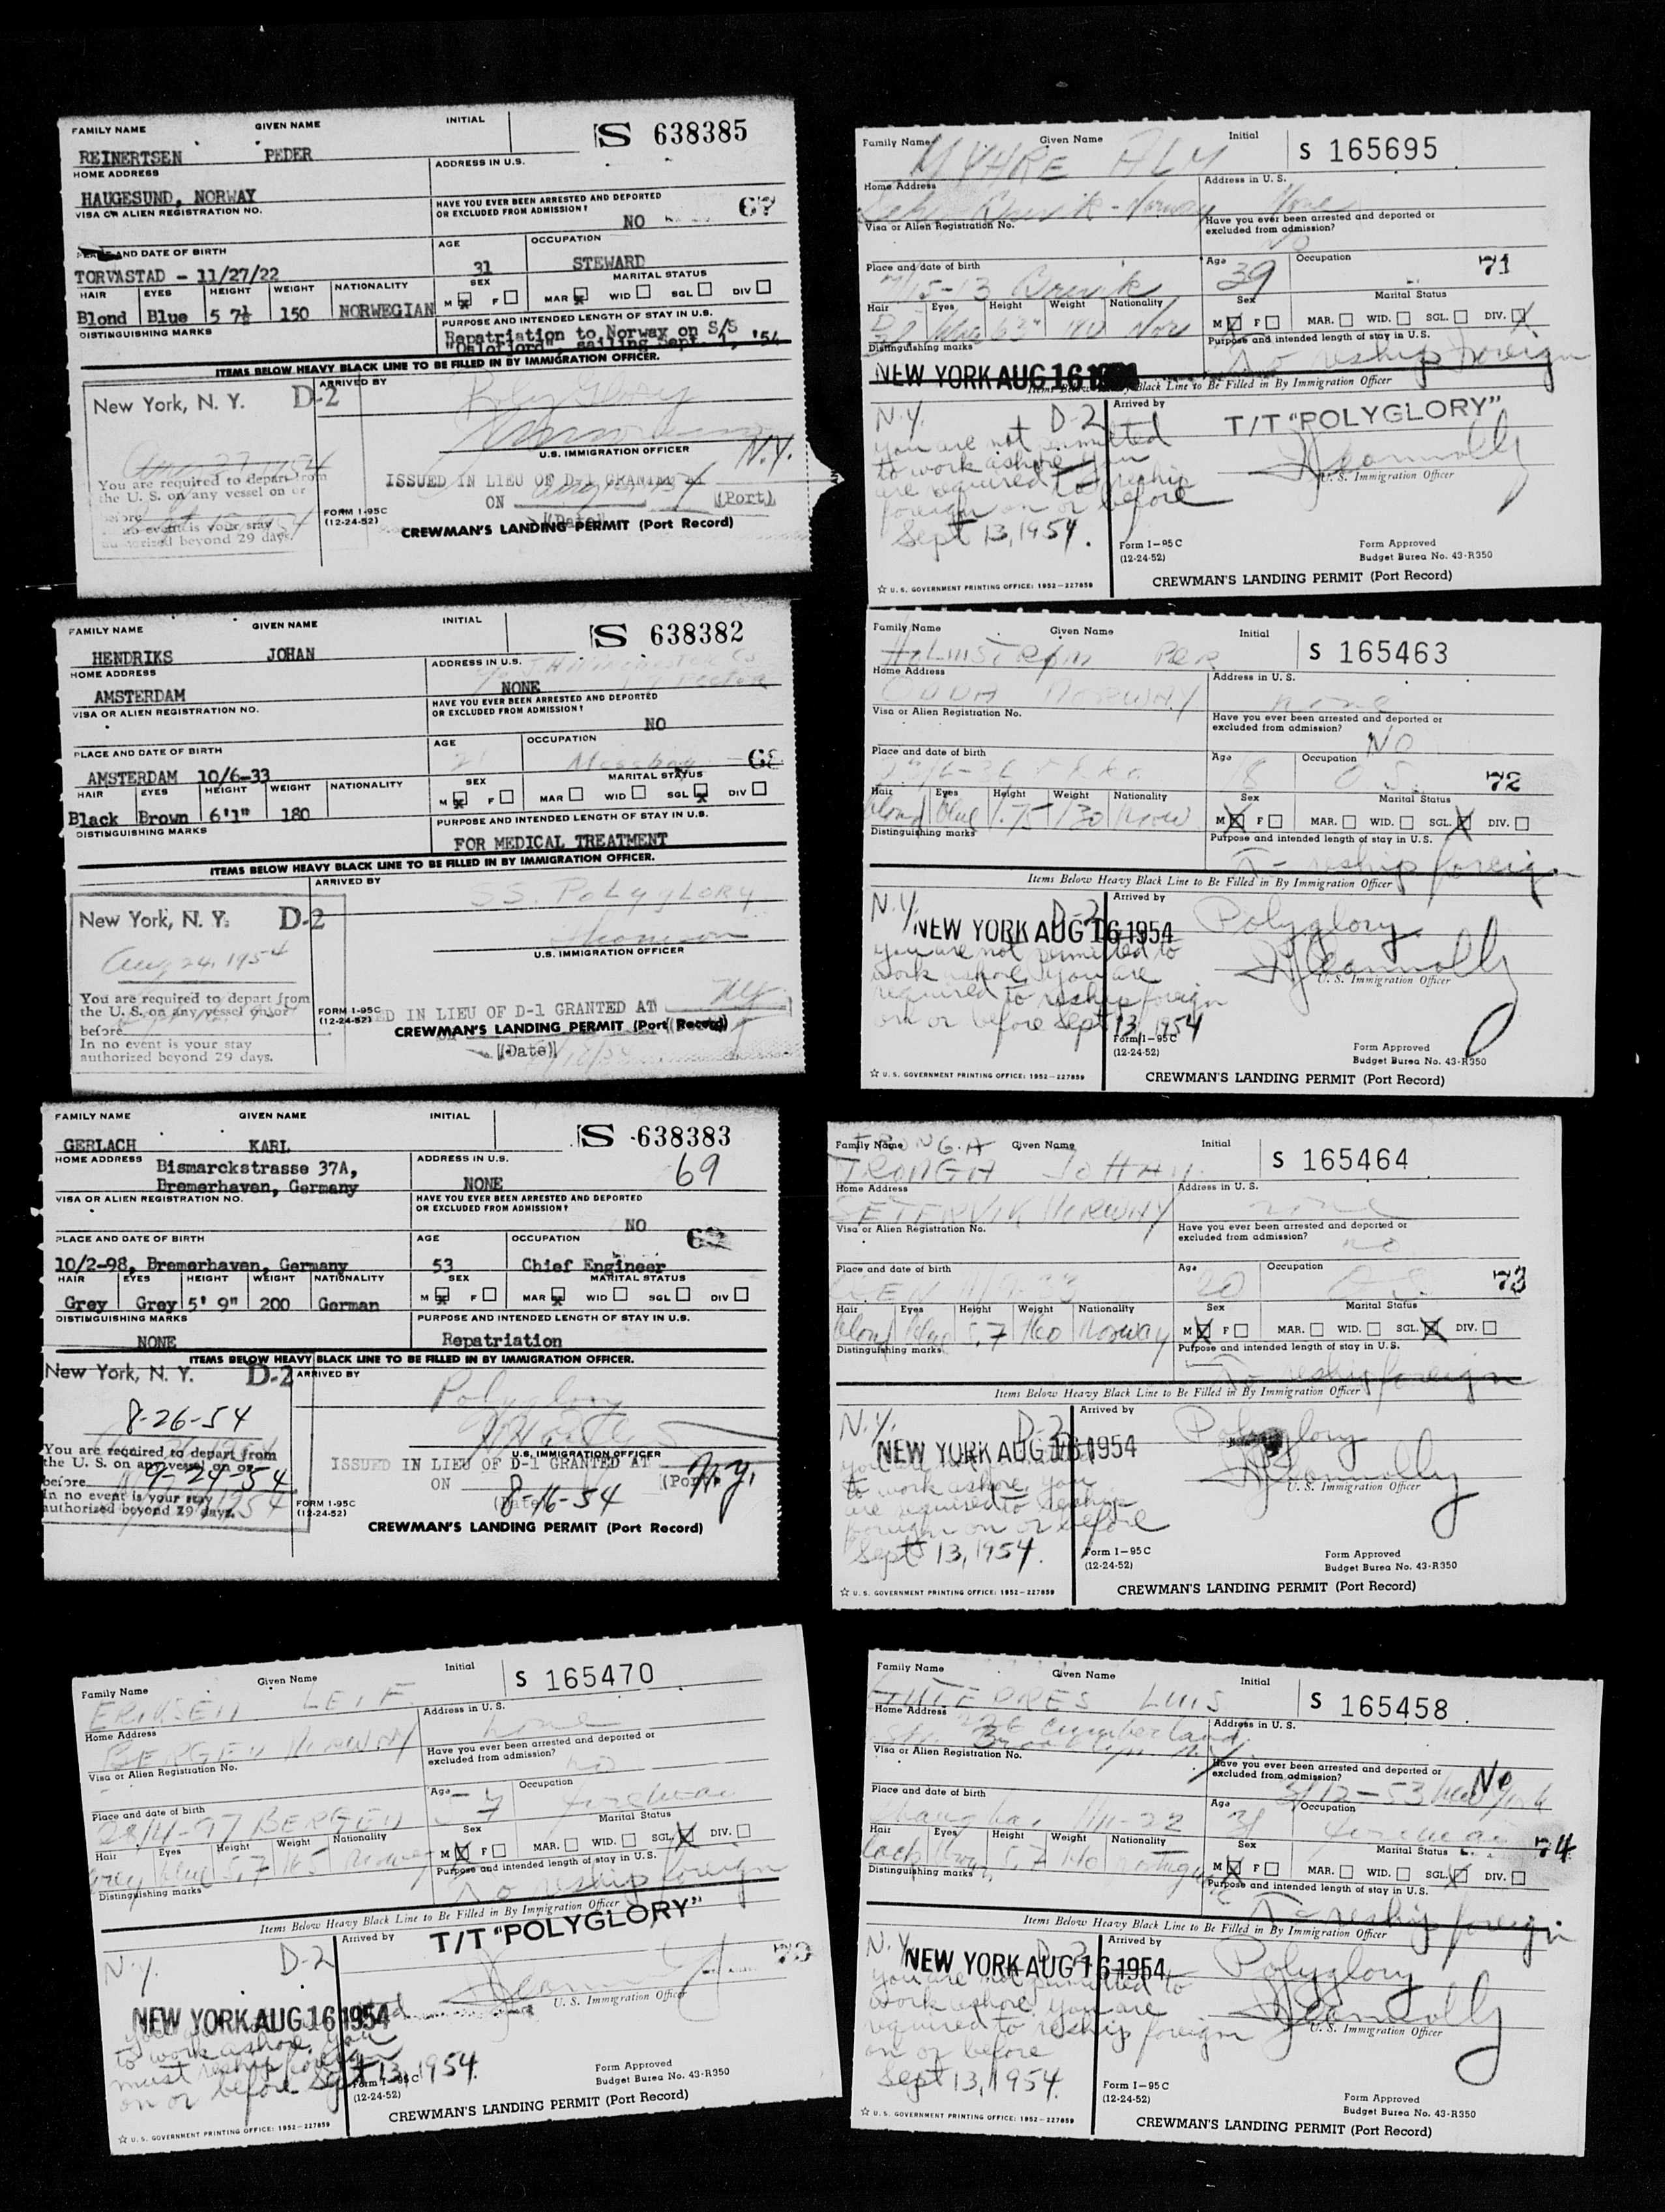 FAMILY NAME GIVEN NAME INITIAL
S 638385
REINERTSEN PEDER
HOME ADDRESS ADDRESS IN U.S.
HAUGESUND, NORWAY
VISA OR ALIEN REGISTRATION NO. HAVE YOU EVER BEEN ARRESTED AND DEPORTED
OR EXCLUDED FROM ADMISSION?
NO 67
AND DATE OF BIRTH AGE OCCUPATION
TORVASTAD - 11/27/22 31 STEWARD
HAIR EYES HEIGHT WEIGHT NATIONALITY SEX MARITAL STATUS
Blond Blue 5 7½ 150 NORWEGIAN M F MAR WID SGL DIV
DISTINGUISHING MARKS PURPOSE AND INTENDED LENGTH OF STAY IN U.S.
Repatriation to Norway on S/S
"Oslofjord" sailing Sept. 1, '54
ITEMS BELOW HEAVY BLACK LINE TO BE FILLED IN BY IMMIGRATION OFFICER.
New York, N. Y. D-2 ARRIVED BY
Polyglory
Aug 27 1954
U.S. IMMIGRATION OFFICER N.Y.
You are required to depart from
the U. S. on any vessel on or
before
In no event is your stay
authorized beyond 29 days.
ISSUED IN LIEU OF D-1 GRANTED AT
ON (Port)
(Date)
FORM I-95C
(12-24-52)
CREWMAN'S LANDING PERMIT (Port Record)
FAMILY NAME GIVEN NAME INITIAL
S 638382
HENDRIKS JOHAN
HOME ADDRESS ADDRESS IN U.S.
AMSTERDAM NONE
VISA OR ALIEN REGISTRATION NO. HAVE YOU EVER BEEN ARRESTED AND DEPORTED
OR EXCLUDED FROM ADMISSION?
NO
PLACE AND DATE OF BIRTH AGE OCCUPATION
AMSTERDAM 10/6-33 21 Messboy 68
HAIR EYES HEIGHT WEIGHT NATIONALITY SEX MARITAL STATUS
Black Brown 6'1" 180 M F MAR WID SGL DIV
DISTINGUISHING MARKS PURPOSE AND INTENDED LENGTH OF STAY IN U.S.
FOR MEDICAL TREATMENT
ITEMS BELOW HEAVY BLACK LINE TO BE FILLED IN BY IMMIGRATION OFFICER.
New York, N. Y. D-2 ARRIVED BY
SS. POLYGLORY
Aug 24, 1954
U.S. IMMIGRATION OFFICER
You are required to depart from
the U. S. on any vessel on or
before
In no event is your stay
authorized beyond 29 days.
FORM I-95C
(12-24-52)
D IN LIEU OF D-1 GRANTED AT NY
CREWMAN'S LANDING PERMIT (Port Record)
(Date)
FAMILY NAME GIVEN NAME INITIAL
S 638383
GERLACH KARL
HOME ADDRESS Bismarckstrasse 37A, ADDRESS IN U.S. 69
Bremerhaven, Germany NONE
VISA OR ALIEN REGISTRATION NO. HAVE YOU EVER BEEN ARRESTED AND DEPORTED
OR EXCLUDED FROM ADMISSION?
NO
PLACE AND DATE OF BIRTH AGE OCCUPATION
10/2-98, Bremerhaven, Germany 53 Chief Engineer
HAIR EYES HEIGHT WEIGHT NATIONALITY SEX MARITAL STATUS
Grey Grey 5' 9" 200 German M F MAR WID SGL DIV
DISTINGUISHING MARKS PURPOSE AND INTENDED LENGTH OF STAY IN U.S.
NONE Repatriation
ITEMS BELOW HEAVY BLACK LINE TO BE FILLED IN BY IMMIGRATION OFFICER.
New York, N. Y. D-2 ARRIVED BY
Polyglory
8-26-54
U.S. IMMIGRATION OFFICER
You are required to depart from
the U. S. on any vessel on or
before 9-29-54
In no event is your stay
authorized beyond 29 days.
ISSUED IN LIEU OF D-1 GRANTED AT N.Y.
ON 8-16-54 (Port)
(Date)
FORM I-95C
(12-24-52)
CREWMAN'S LANDING PERMIT (Port Record)
Family Name Given Name Initial
S 165470
ERIKSEN LEIF
Home Address Address in U. S.
BERGEN NORWAY none
Visa or Alien Registration No. Have you ever been arrested and deported or
excluded from admission?
no
Place and date of birth Age Occupation
BERGEN 57 fireman
Hair Eyes Height Weight Nationality Sex Marital Status
grey blue 5,7 165 M F MAR. WID. SGL. DIV.
Distinguishing marks Purpose and intended length of stay in U. S.
To reship foreign
Items Below Heavy Black Line to Be Filled in By Immigration Officer
N.Y. D-2 Arrived by T/T "POLYGLORY"
70
U. S. Immigration Officer
NEW YORK AUG 16 1954
to work ashore. You
must reship foreign
on or before Sept 13, 1954.
Form I-95C
(12-24-52)
Form Approved
Budget Burea No. 43-R350
U. S. GOVERNMENT PRINTING OFFICE: 1952-227859
CREWMAN'S LANDING PERMIT (Port Record)
Family Name Given Name Initial
S 165695
MYHRE ALM
Home Address Address in U. S.
Norway None
Visa or Alien Registration No. Have you ever been arrested and deported or
excluded from admission?
No
Place and date of birth Age Occupation
39 71
Hair Eyes Height Weight Nationality Sex Marital Status
M F MAR. WID. SGL. DIV.
Distinguishing marks Purpose and intended length of stay in U. S.
To reship foreign
NEW YORK AUG 16
Black Line to Be Filled in By Immigration Officer
N.Y. D-2 Arrived by T/T "POLYGLORY"
you are not permitted
to work ashore. You
are required to reship
foreign on or before
Sept 13, 1954.
U. S. Immigration Officer
Form I-95C
(12-24-52)
Form Approved
Budget Burea No. 43-R350
U. S. GOVERNMENT PRINTING OFFICE: 1952-227859
CREWMAN'S LANDING PERMIT (Port Record)
Family Name Given Name Initial
S 165463
HOLMSTRØM PER
Home Address Address in U. S.
ODDA NORWAY none
Visa or Alien Registration No. Have you ever been arrested and deported or
excluded from admission?
NO
Place and date of birth Age Occupation
O.S. 72
Hair Eyes Height Weight Nationality Sex Marital Status
blond blue 1.75 130 M F MAR. WID. SGL. DIV.
Distinguishing marks Purpose and intended length of stay in U. S.
To reship foreign
Items Below Heavy Black Line to Be Filled in By Immigration Officer
N.Y. D-2 Arrived by Polyglory
NEW YORK AUG 16 1954
you are not permitted to
work ashore, you are
required to reship foreign
on or before Sept 13, 1954
U. S. Immigration Officer
Form I-95C
(12-24-52)
Form Approved
Budget Burea No. 43-R350
U. S. GOVERNMENT PRINTING OFFICE: 1952-227859
CREWMAN'S LANDING PERMIT (Port Record)
Family Name Given Name Initial
S 165464
TRONGA JOHAN
Home Address Address in U. S.
none
Visa or Alien Registration No. Have you ever been arrested and deported or
excluded from admission?
no
Place and date of birth Age Occupation
20 73
Hair Eyes Height Weight Nationality Sex Marital Status
blond blue 5,7 160 Norway M F MAR. WID. SGL. DIV.
Distinguishing marks Purpose and intended length of stay in U. S.
To reship foreign
Items Below Heavy Black Line to Be Filled in By Immigration Officer
N.Y. D-2 Arrived by Polyglory
NEW YORK AUG 16 1954
to work ashore, you
are required to reship
foreign on or before
Sept 13, 1954.
U. S. Immigration Officer
Form I-95C
(12-24-52)
Form Approved
Budget Burea No. 43-R350
U. S. GOVERNMENT PRINTING OFFICE: 1952-227859
CREWMAN'S LANDING PERMIT (Port Record)
Family Name Given Name Initial
S 165458
LUIS
Home Address 226 cumberland Address in U. S.
St. Brooklyn N.Y.
Visa or Alien Registration No. Have you ever been arrested and deported or
excluded from admission? No
3/12-53 New York
Place and date of birth Age Occupation
31 fireman 74
Hair Eyes Height Weight Nationality Sex Marital Status
M F MAR. WID. SGL. DIV.
Distinguishing marks Purpose and intended length of stay in U. S.
To reship foreign
Items Below Heavy Black Line to Be Filled in By Immigration Officer
N.Y. D-2 Arrived by Polyglory
NEW YORK AUG 16 1954
you are not permitted to
work ashore. you are
required to reship foreign
on or before
Sept 13, 1954.
U. S. Immigration Officer
Form I-95C
(12-24-52)
Form Approved
Budget Burea No. 43-R350
U. S. GOVERNMENT PRINTING OFFICE: 1952-227859
CREWMAN'S LANDING PERMIT (Port Record)